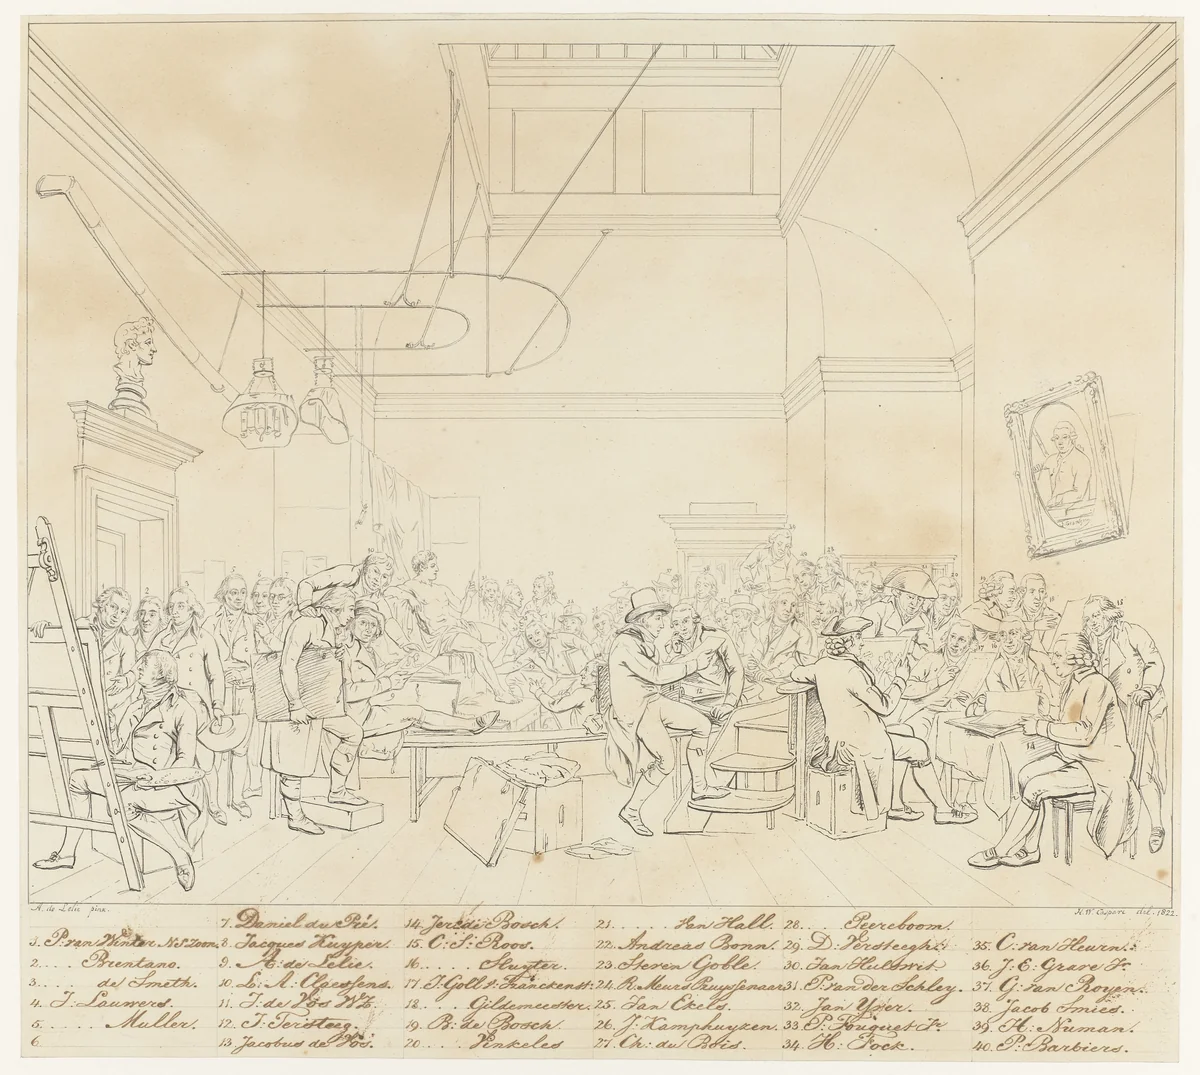 A. de Lelie pinx.
H. W. Caspari del. 1822.
1. P. van Winter N.S.Zoon.
2. . . . Brentano.
3. . . . de Smeth.
4. J. Lauwers.
5. . . . . Muller.
6.
7. Daniel du Pré.
8. Jacques Kuyper.
9. A: de Lelie.
10. L: A: Claessens.
11. J: de Vos WZ.
12. J: Tersteeg.
13. Jacobus de Vos.
14. Jer: de Bosch.
15. C: S: Roos.
16. . . . Sluyter.
17. J: Goll v: Franckenst:
18. . . . Gildemeester.
19. B: de Bosch.
20. . . . Vinkeles
21. . . . . Van Hall.
22. Andreas Bonn.
23. Steven Goble.
24. R. Meurs Pruyssenaar
25. Jan Ekels.
26. J: Kamphuyzen.
27. Ch: du Bois.
28. . . . Peereboom.
29. D: Versteegh:
30. Jan Hulswit.
31. P: van der Schley.
32. Jan Yver.
33. P: Fouquet Jr.
34. H: Fock.
35. C: van Heurn:
36. J: E: Grave Jr.
37. G: van Royen.
38. Jacob Smies.
39. H: Numan.
40. P: Barbiers.